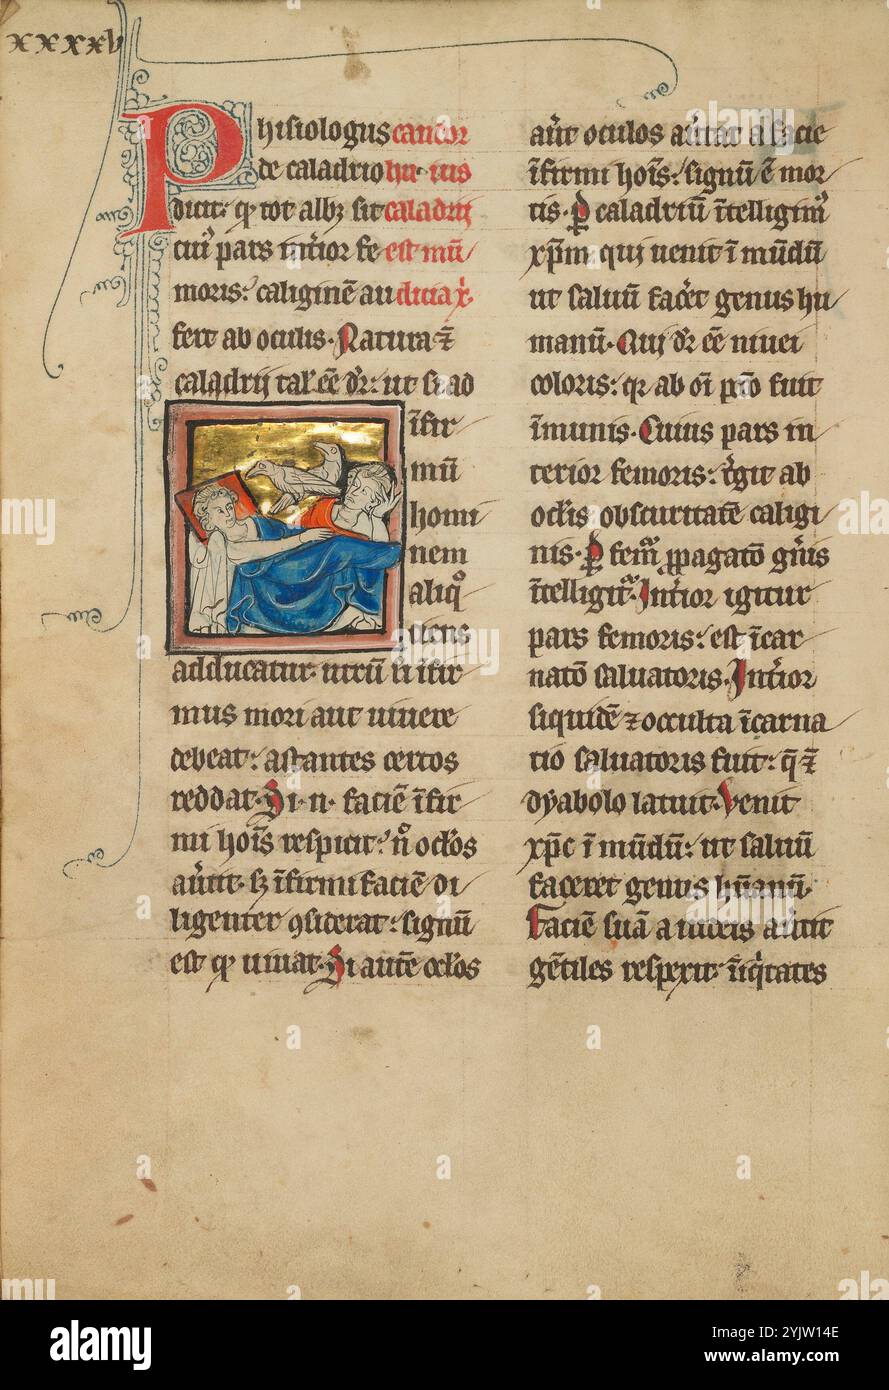 xxxxv
Phisiologus candor
de caladrio hu ius
dicit: qͥ tot albꝫ sit caladrij
cuiꝰ pars int̾ior fe est mū
moris: caliginē au ditia xͥ.
fert ab oculis. Natura ⁊
caladrij tal' ēē dr̄: ut si ad
īfir
mū
homi
nem
aliqͦ
uens
adducatur. utrū si īfir
mus mori aut uiuere
debeat: astantes certos
reddat. Si .n. faciē īfir
mi hoīs respicit: nͦ oc̄los
au̾tit. sꝫ īfirmi faciē di
ligenter ꝯsiderat: signū
est qͥ uiuat. Si autē oc̄los
au̾t oculos au̾tat a facie
īfirmi hoīs: signū ē mor
tis. ꝑ caladriū ītelligimꝰ
xp̄m qui uenit ī mūdū
ut saluū fac̾et genus hu
manū. Qui dr̄ ēē niuei
coloris: qr ab oī pc̄o fuit
īmunis. Cuius pars in
terior femoris: t̾git ab
oc̄lis obscuritatē caligi
nis. ꝑ femꝰ ꝓpagatō gn̄is
ītelligitᷣ. Int̾ior igitur
pars femoris: est īcar
natō saluatoris. Int̾ior
siquidē ⁊ occulta īcarna
tio saluatoris fuit: q̄ ⁊
dyabolo latuit. Venit
xp̄c ī mūdū: ut saluū
faceret genus hūanū.
Faciē suā a iudeis au̾tit
gētiles respexit. īiq̾tates
alamy
Image ID: 2YJW14E
www.alamy.com